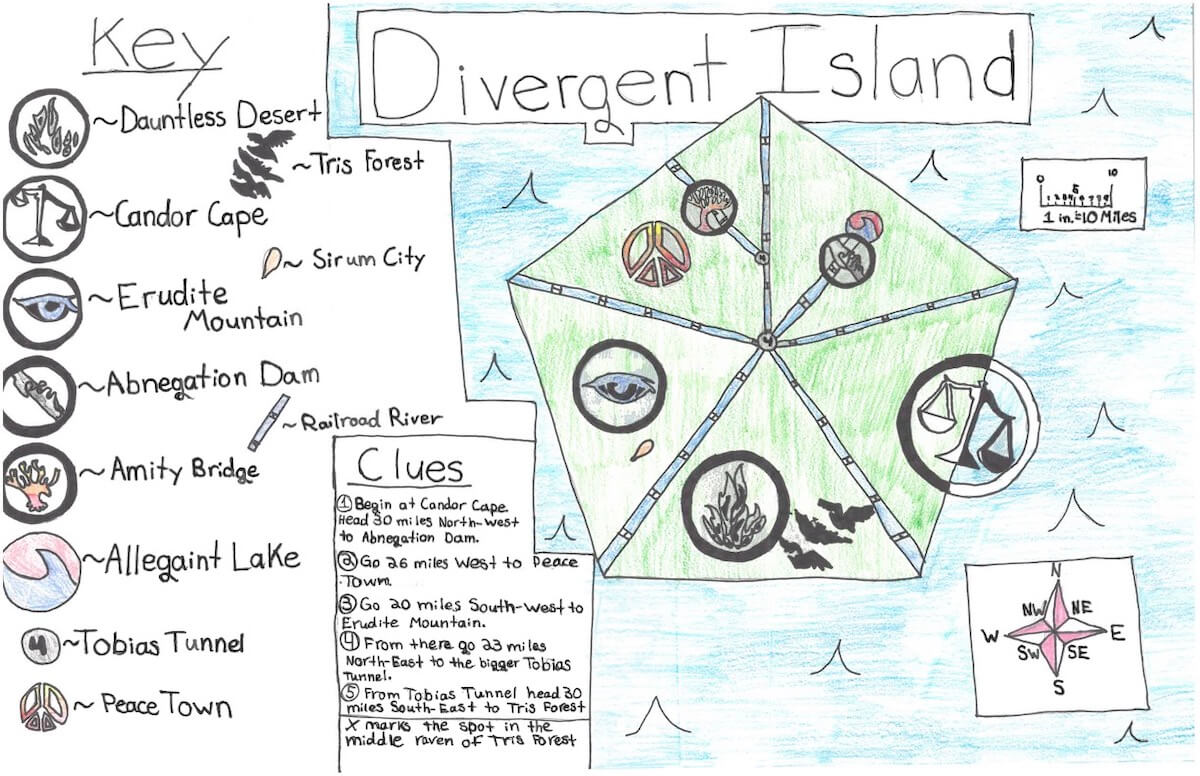 Key
~Dauntless Desert
~Tris Forest
~Candor Cape
~ Sirum City
~ Erudite
Mountain
~Abnegation Dam
~Railroad River
~ Amity Bridge
~Allegaint Lake
4
~Tobias Tunnel
~ Peace Town
Divergent Island
0 5 10
1 in.=10 Miles
4
4
Clues
① Begin at Candor Cape.
Head 30 miles North-West
to Abnegation Dam.
② Go 26 miles West to Peace
Town.
③ Go 20 miles South-West to
Erudite Mountain.
④ From there go 23 miles
North-East to the bigger Tobias
Tunnel.
⑤ From Tobias Tunnel head 30
miles South-East to Tris Forest
X marks the spot in the
middle raven of Tris Forest
N
NW NE
W E
SW SE
S